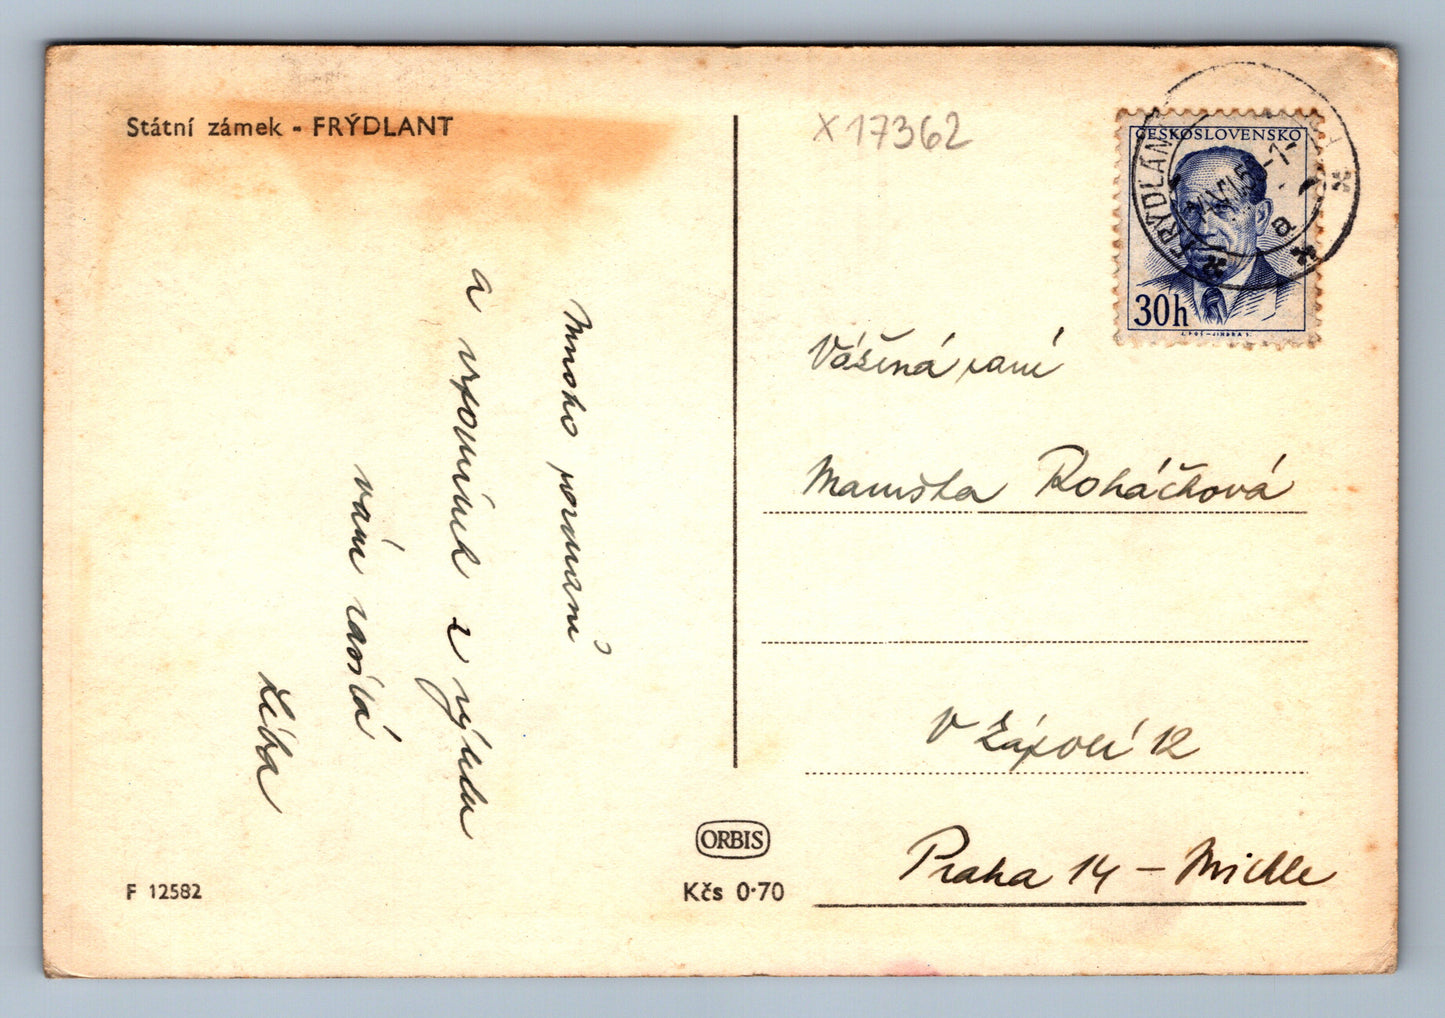 Státní zámek - FRÝDLANT
X 17362
ČESKOSLOVENSKO
FRÝDLANT
30h
Mnoho pozdravů
a vzpomínek z výletu
vám zasílá
Liba
Vážená paní
Maruška Roháčková
V Zápolí 12
Praha 14 - Michle
ORBIS
Kčs 0·70
F 12582